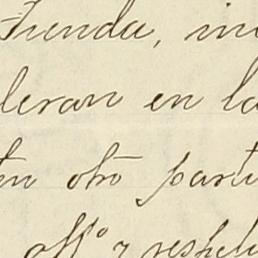 Tienda, in
leran en la
en otro parti
aff.º y respetu